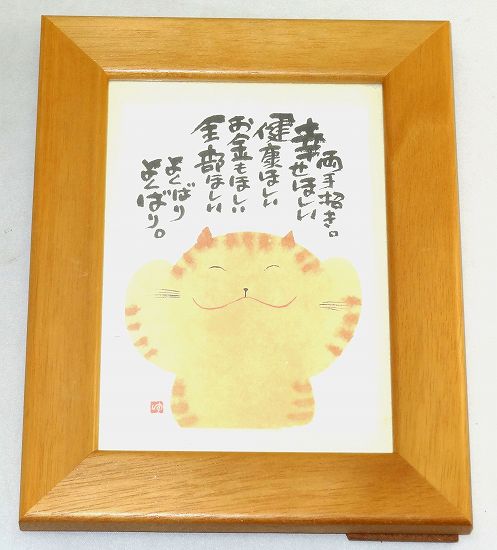 両手招き。
幸せほしい
健康ほしい
お金もほしい
全部ほしい
よくばり
よくばり。
ゆ